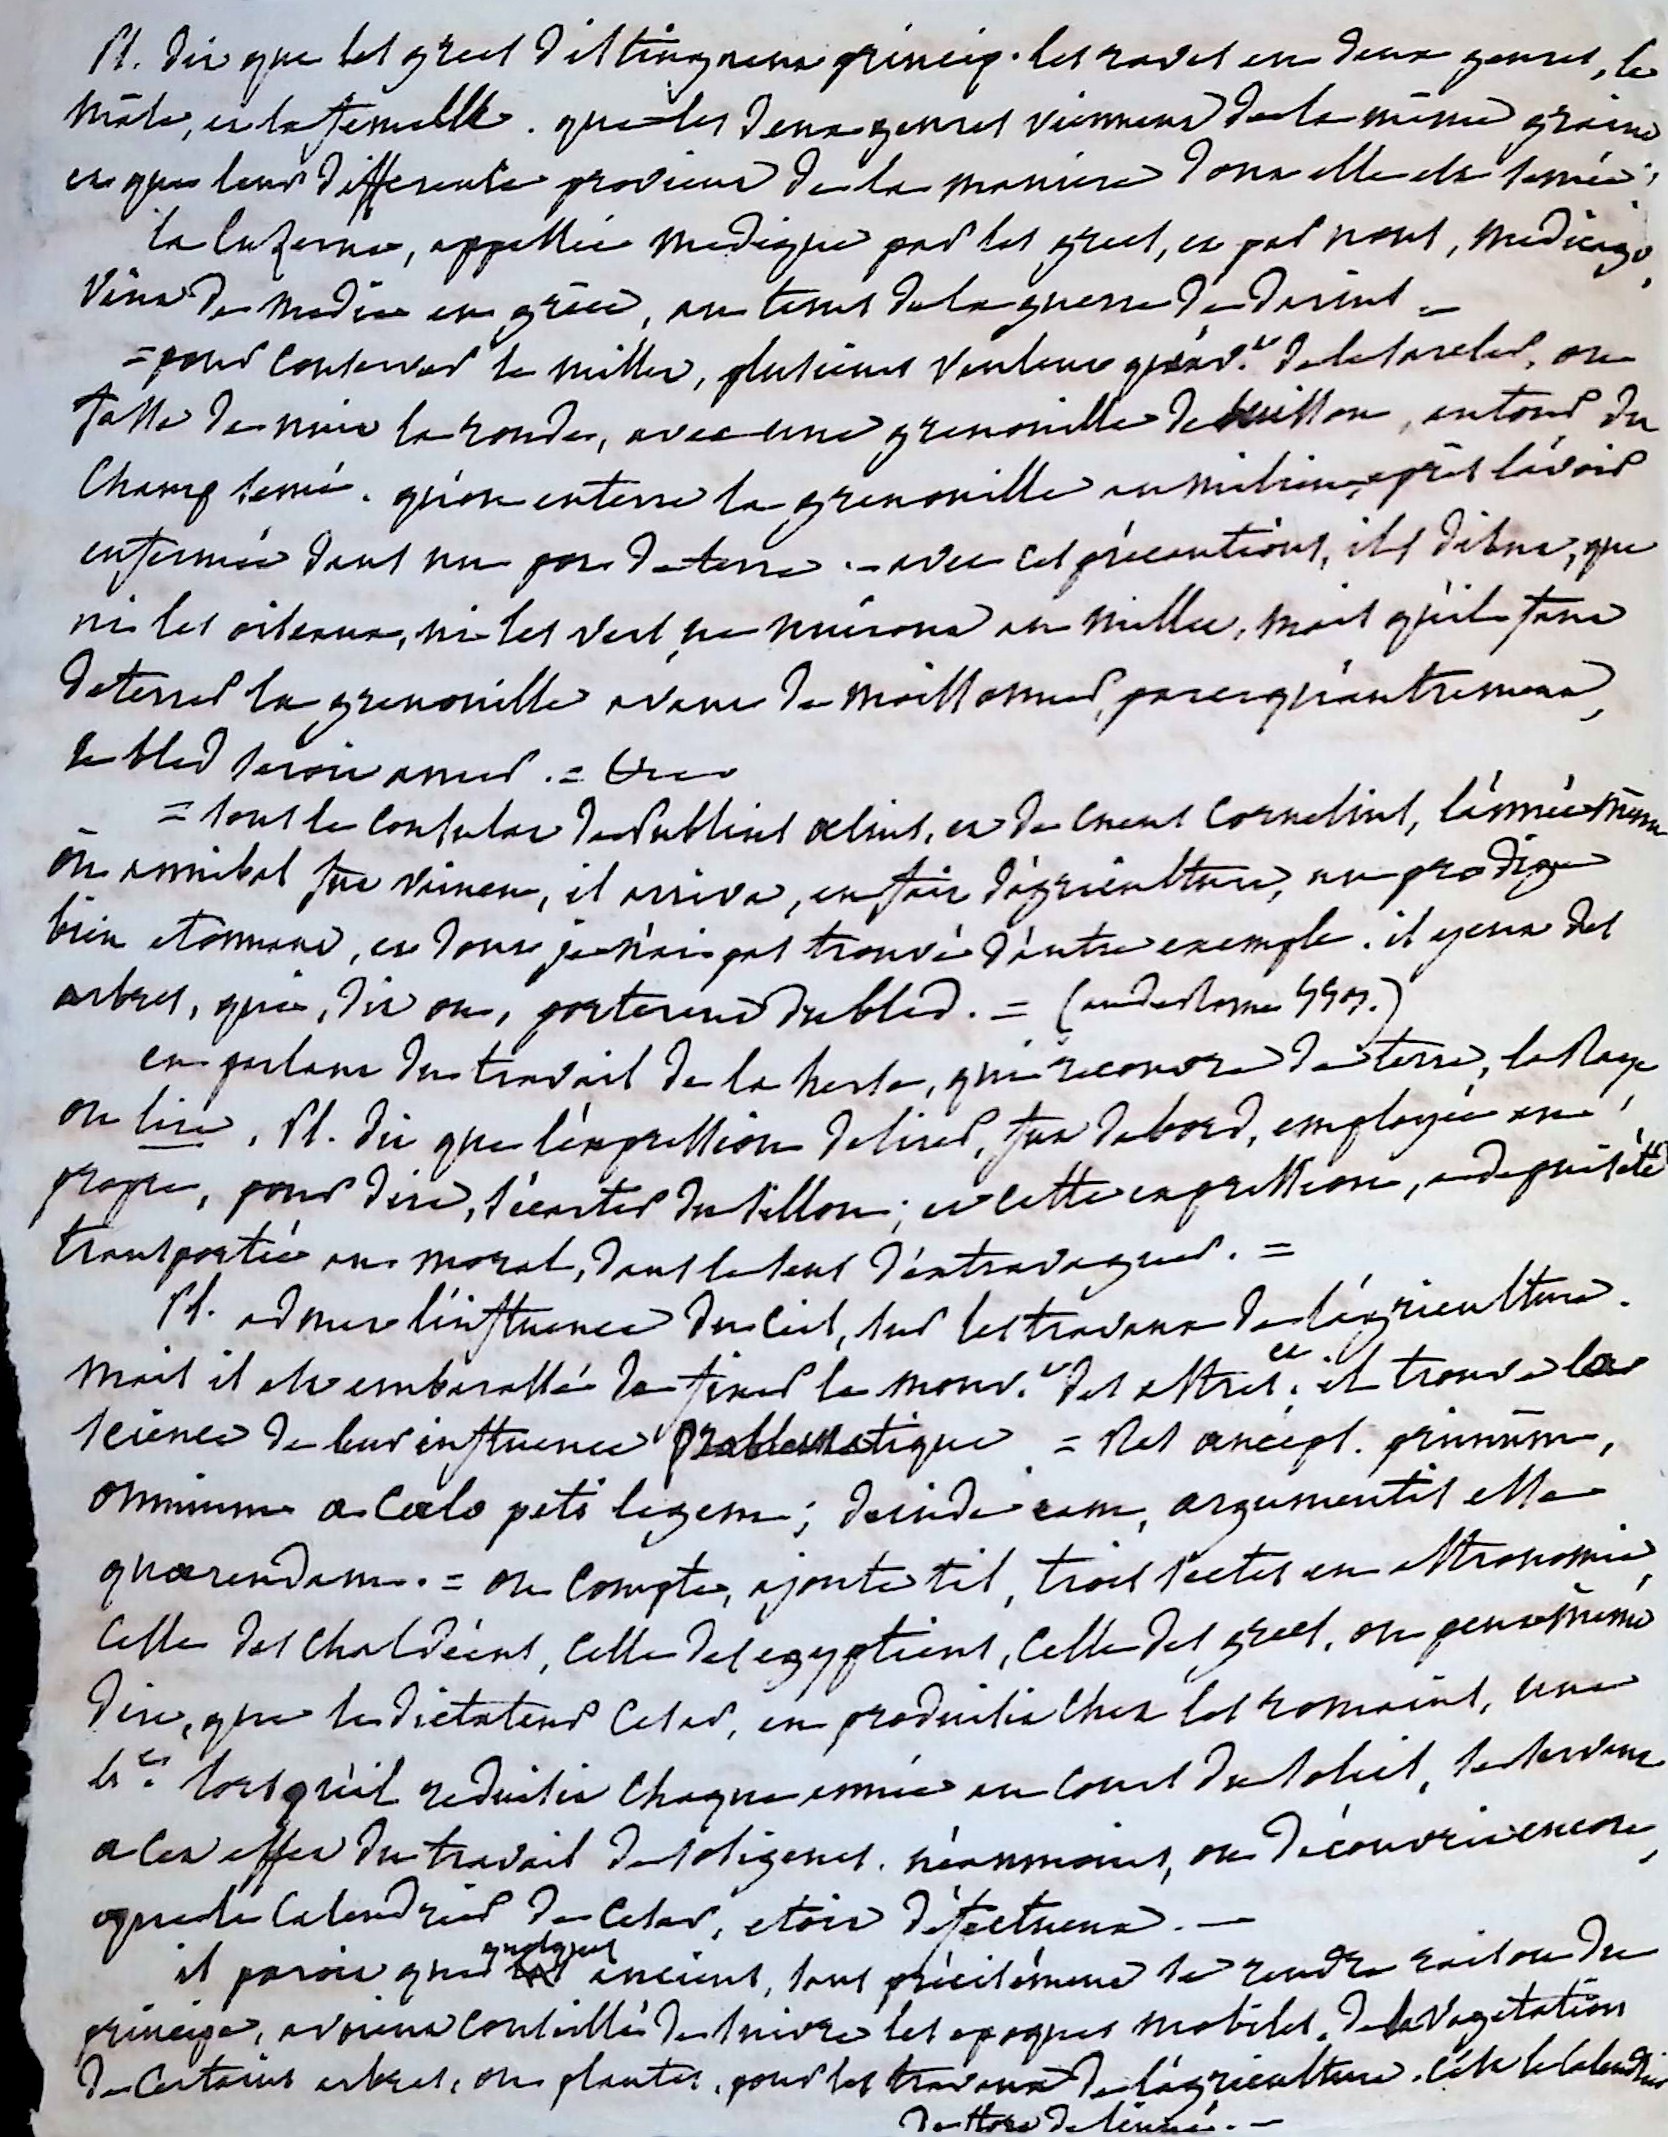 Pl. dit que les grecs distinguent princip. les raves en deux genres, le
mâle, et la femelle. que les deux genres viennent de la même graine
et que leur difference provient de la maniere dont elle est semée;
la luzerne, appellée medique par les grecs, et par nous, medicago,
vint de medie en grèce, au tems de la guerre de darius =
= pour conserver le millet, plusieurs veulent qu'av.t de le sarcler, on
fasse de nuit la ronde, avec une grenouille de buisson, autour du
champ semé. qu'on enterre la grenouille au milieu, après l'avoir
enfermée dans un pot de terre. - avec ces précautions, ils disent, que
ni les oiseaux, ni les vers, ne nuiront au millet, mais qu'il faut
deterrer la grenouille avant de moissonner, parcequ'autrement,
le bled seroit amer. =
= sous le consulat de Publius ælius, et de cneus Cornelius, l'année même
où annibal fut vaincu, il arriva, en fait d'agriculture, un prodige
bien etonnant, et dont je n'ai pas trouvé d'autre exemple. il y eut des
arbres, qui, dit on, porterent du bled. = (an de Rome
en parlant du travail de la herse, qui recouvre de terre, la Raye
ou lire, Pl. dit que l'expression delirer, fut d'abord, employée au
propre, pour dire, s'écarter du sillon; et cette expression, a depuis été
transportée au moral, dans le sens d'extravaguer. =
Pl. admet l'influence du ciel, sur les travaux de l'agriculture.
mais il est embarassé de fixer le mouv.t des astres, et il trouve la
science de leur influence problematique = Res anceps. primum,
omnium a Cœlo peti legem; deinde eam, argumentis esse
quærendam. = on compte, ajoute til, trois sectes en astronomie,
celle des chaldéens, celle des egyptiens, celle des grecs, on peut même
dire, que le dictateur Cesar, en produisit chez les romains, une
4.e lorsqu'il reduisit chaque année au cours du soleil, se servant
a cet effet du travail de sosigenes. néanmoins, on découvrit encore,
que le calendrier de Cesar, etoit défectueux. -
il paroit que quelques anciens, sans précisément se rendre raison du
principe, avoient conseillé de suivre les epoques mobiles, de la vegetation
de certains arbres, ou plantes, pour les travaux de l'agriculture. c'est le calendrier
de flore de linné. -